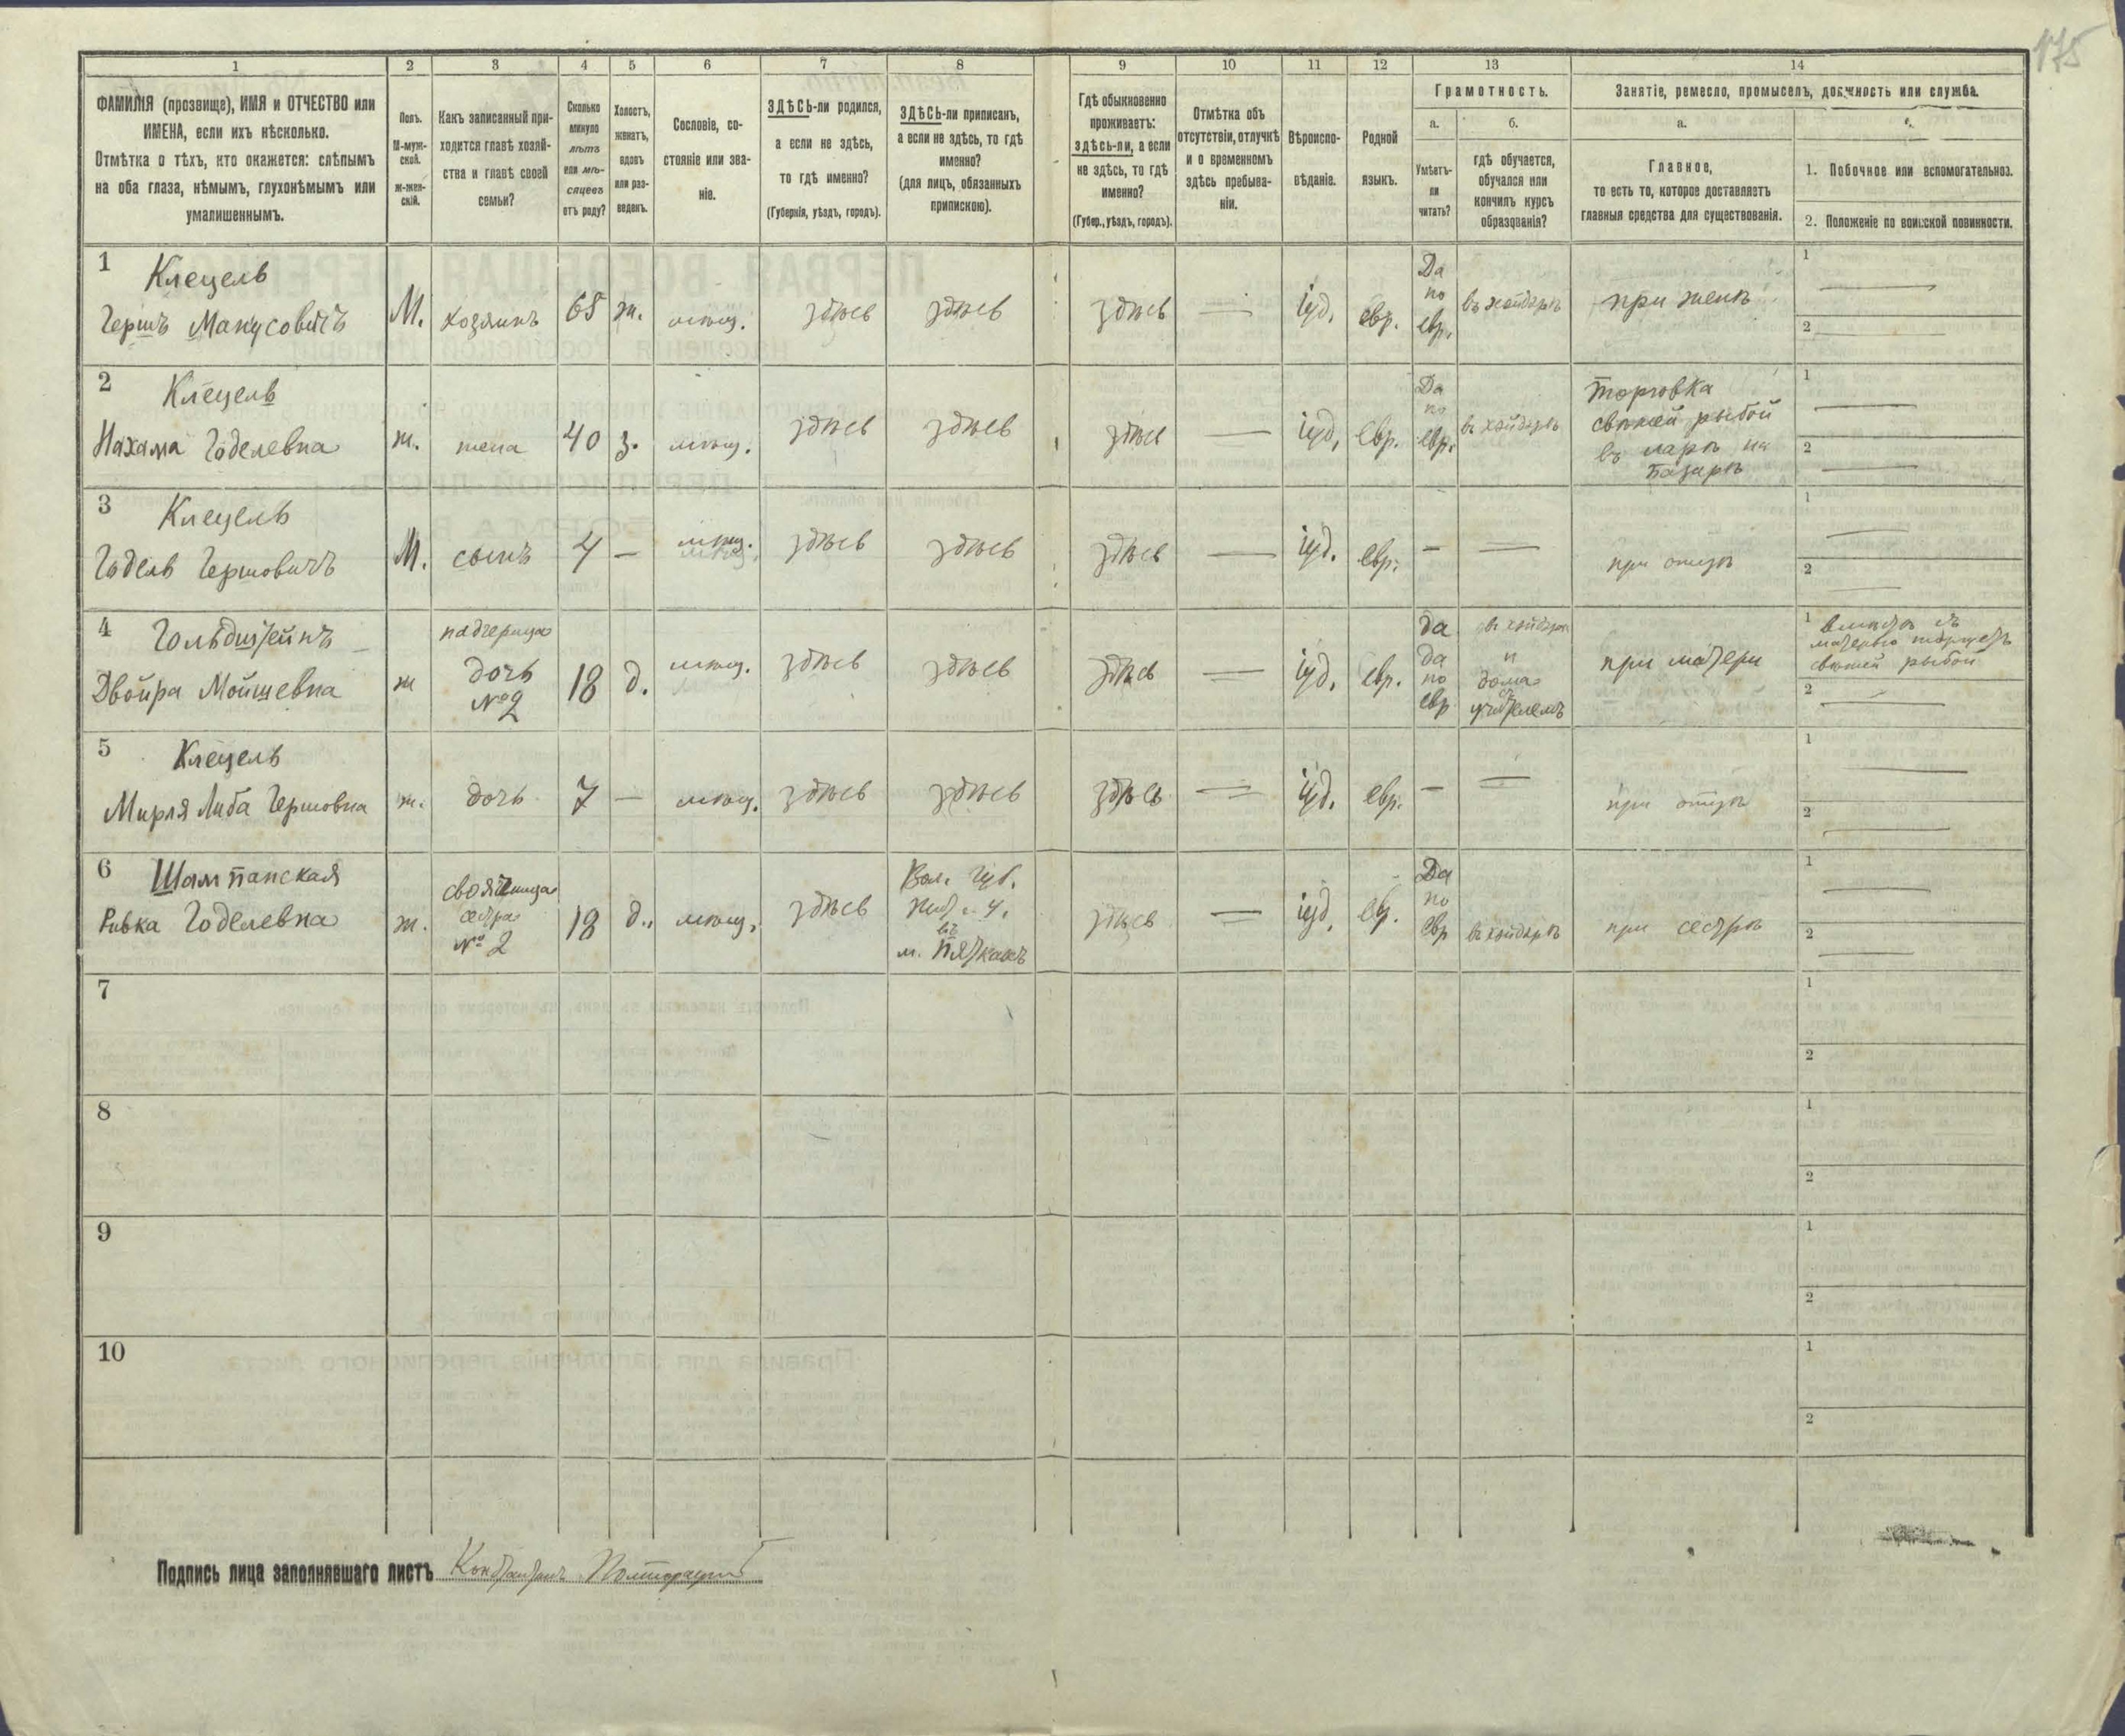 175
1
2
3
4
5
6
7
8
9
10
11
12
13
14
ФАМИЛІЯ (прозвище), ИМЯ и ОТЧЕСТВО или
ИМЕНА, если ихъ нѣсколько.
Отмѣтка о тѣхъ, кто окажется: слѣпымъ
на оба глаза, нѣмымъ, глухонѣмымъ или
умалишеннымъ.
Полъ.
М-муж-
ской.
ж-жен-
скій.
Какъ записанный при-
ходится главѣ хозяй-
ства и главѣ своей
семьи?
Сколько
минуло
лѣтъ
или мѣ-
сяцевъ
отъ роду?
Холостъ,
женатъ,
вдовъ
или раз-
веденъ.
Сословіе, со-
стояніе или зва-
ніе.
ЗДѢСЬ-ли родился,
а если не здѣсь,
то гдѣ именно?
(Губернія, уѣздъ, городъ).
ЗДѢСЬ-ли приписанъ,
а если не здѣсь, то гдѣ
именно?
(для лицъ, обязанныхъ
припискою).
Гдѣ обыкновенно
проживаетъ:
здѣсь-ли, а если
не здѣсь, то гдѣ
именно?
(Губер., уѣздъ, городъ).
Отмѣтка объ
отсутствіи, отлучкѣ
и о временномъ
здѣсь пребыва-
ніи.
Вѣроиспо-
вѣданіе.
Родной
языкъ.
Грамотность.
а.
Умѣетъ-
ли
читать?
б.
гдѣ обучается,
обучался или
кончилъ курсъ
образованія?
Занятіе, ремесло, промыселъ, должность или служба.
а.
Главное,
то есть то, которое доставляетъ
главныя средства для существованія.
1. Побочное или вспомогательное.
2. Положеніе по воинской повинности.
1 Клецель
Гершъ Манусовичъ
М.
хозяинъ
65
ж.
мѣщ.
здѣсь
здѣсь
здѣсь
—
іуд.
евр.
Да
по
евр.
въ хейдерѣ
при женѣ
1 —
2 —
2 Клецель
Нахама Годелевна
ж.
жена
40
з.
мѣщ.
здѣсь
здѣсь
здѣсь
—
іуд.
евр.
Да
по
евр.
въ хейдерѣ
торговка
свѣжей рыбой
въ ларѣ на
базарѣ
1 —
2 —
3 Клецель
Годель Гершовичъ
М.
сынъ
4
—
мѣщ.
здѣсь
здѣсь
здѣсь
—
іуд.
евр.
—
—
при отцѣ
1 —
2 —
4 Гольдштейнъ
Двойра Мойшевна
ж
падчерица
дочь
№ 2
18
д.
мѣщ.
здѣсь
здѣсь
здѣсь
—
іуд.
евр.
да
да
по
евр
въ хейдерѣ
и
дома
съ
учителемъ
при матери
1 вмѣстѣ съ
матерью торгуетъ
свѣжей рыбой
2 —
5 Клецель
Мирля Либа Гершовна
ж.
дочь
7
—
мѣщ.
здѣсь
здѣсь
здѣсь
—
іуд.
евр.
—
—
при отцѣ
1 —
2 —
6 Шампанская
Ривка Годелевна
ж.
свояченица
сестра
№ 2
18
д.
мѣщ.
здѣсь
Вол. Губ.
въ
м. Пяткахъ
здѣсь
—
іуд.
ев.
Да
по
евр
въ хейдерѣ
при сестрѣ
1 —
2 —
7
1
2
8
1
2
9
1
2
10
1
2
Подпись лица заполнявшаго листъ Константинъ